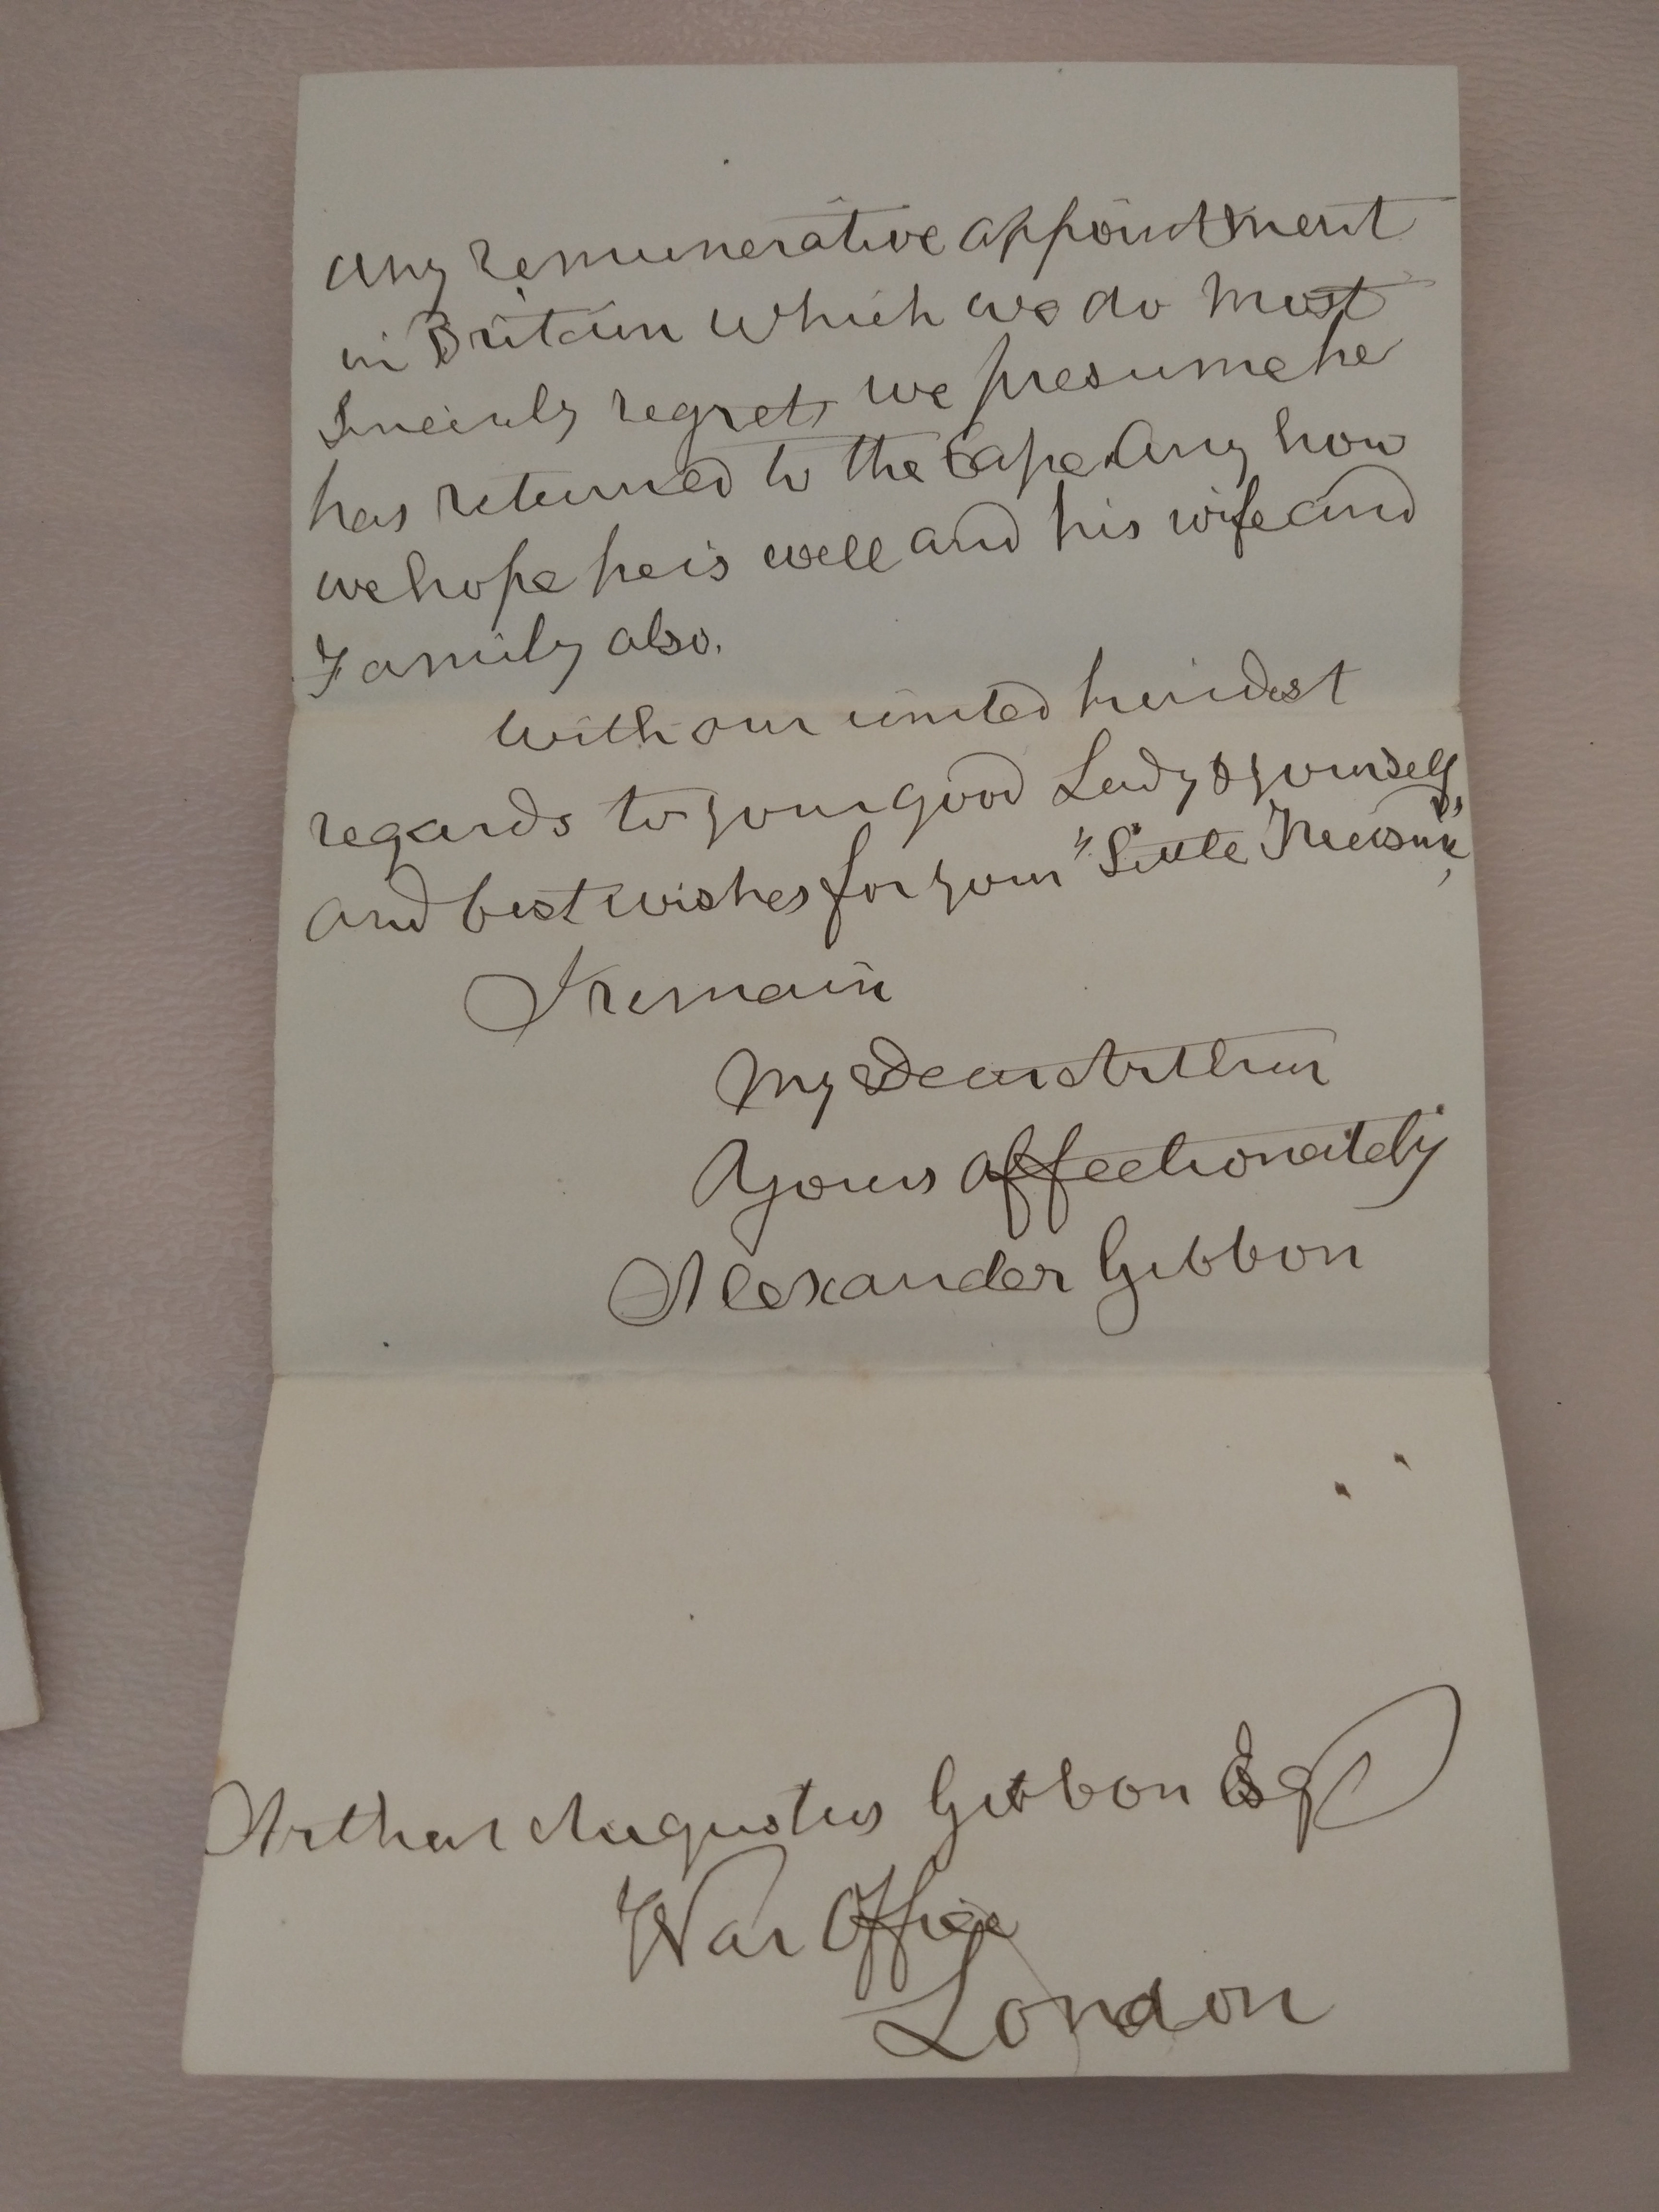 any remunerative appointment
in Britain which we do most
Sincerely regret, we presume he
has returned to the Cape. Any how
we hope he is well and his wife and
Family also.
With our united kindest
regards to your good Lady & yourself
and best wishes for your "Little Treasure",
I remain
My Dear Arthur
Yours affectionately
Alexander Gibbon
Arthur Augustus Gibbon Esq
War Office
London